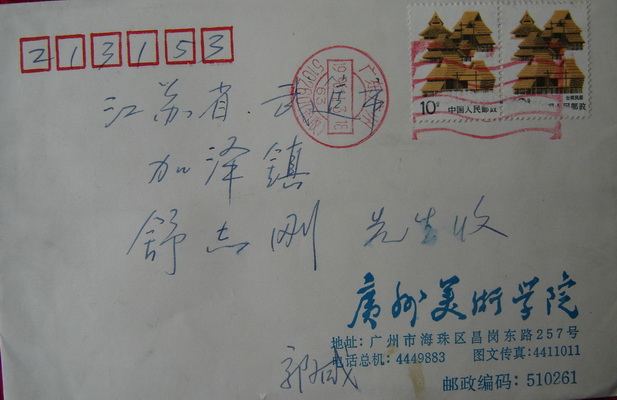 213153
10分 中国人民邮政
江苏省.武进市
加泽镇
舒志刚 先生收
廣州美術学院
地址:广州市海珠区昌岗东路257号
电话总机: 4449883 图文传真:4411011
郭成
邮政编码: 510261